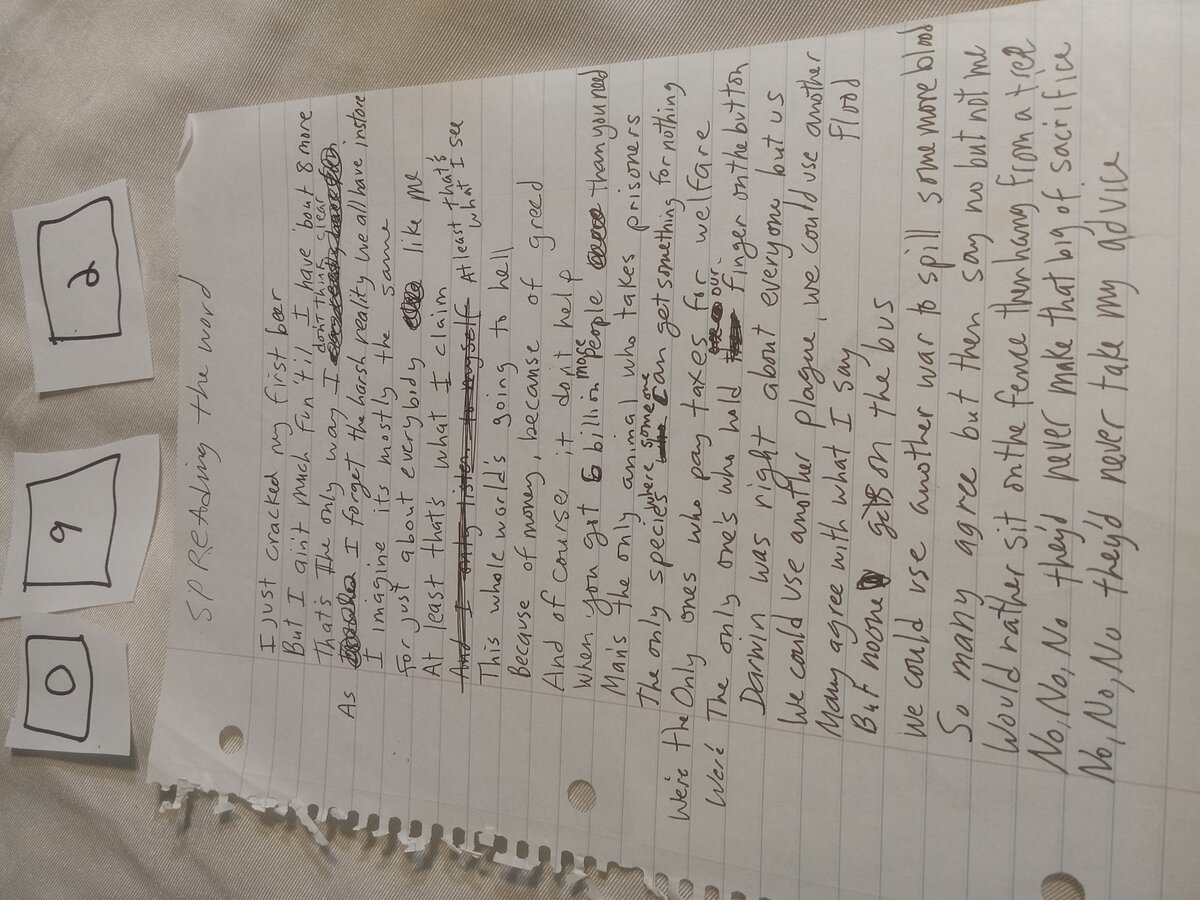 0 9 2
SPREAding the word
I Just cracked my first beer
But I ain't much fun 'til I have bout 8 more
That's the only way I don't think clear
As I forget the harsh reality we all have instore
I imagine its mostly the same
For just about everybody like me
At least that's what I claim
And I only listen to myself Atleast that's what I see
This whole world's going to hell
Because of money, because of greed
And of course, it don't help
When you got 6 billion more people than you need
Man's the only animal who takes prisoners
The only species where someone can get something for nothing
We're the Only ones who pay taxes for welfare
We're The only one's who hold our finger on the button
Darwin was right about everyone but us
We could use another plague, we could use another flood
Many agree with what I say
But noone gets on the bus
We could use another war to spill some more blood
So many agree but then say no but not me
Would rather sit on the fence then hang from a tree
No, No, No they'd never make that big of sacrifice
No, No, No they'd never take my advice